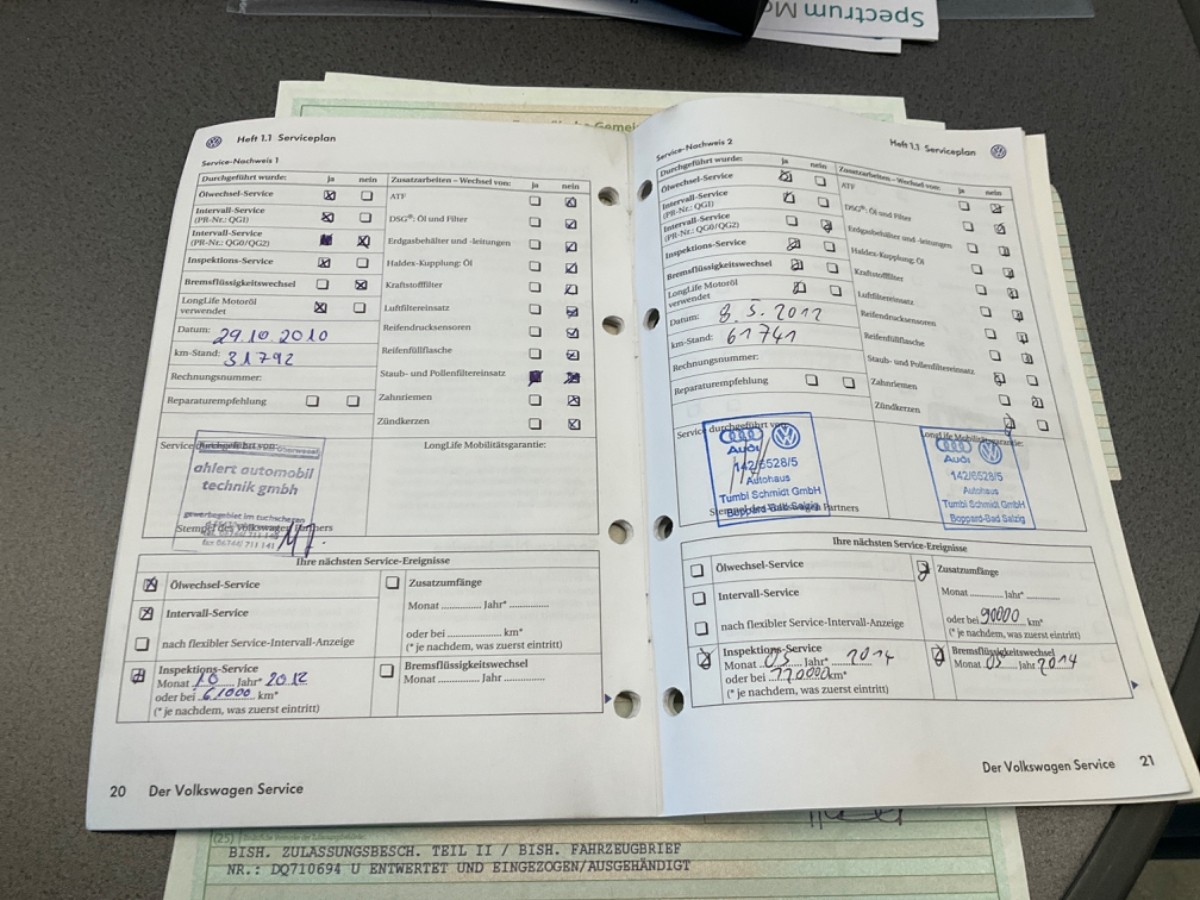 Spectrum
Heft 1.1 Serviceplan
Service-Nachweis 1
Durchgeführt wurde: ja nein
Zusatzarbeiten – Wechsel von: ja nein
Ölwechsel-Service
Intervall-Service
(PR-Nr.: QG1)
Intervall-Service
(PR-Nr.: QG0/QG2)
Inspektions-Service
Bremsflüssigkeitswechsel
LongLife Motoröl
verwendet
Datum: 29.10.2010
km-Stand: 31792
Rechnungsnummer:
Reparaturempfehlung
ATF
DSG®: Öl und Filter
Erdgasbehälter und -leitungen
Haldex-Kupplung: Öl
Kraftstofffilter
Luftfiltereinsatz
Reifendrucksensoren
Reifenfüllflasche
Staub- und Pollenfiltereinsatz
Zahnriemen
Zündkerzen
Service durchgeführt von:
ahlert automobil
technik gmbh
gewerbegebiet im tuchscherer
Stempel des Volkswagen Partners
fax 06744/ 711 141
LongLife Mobilitätsgarantie:
Ihre nächsten Service-Ereignisse
Ölwechsel-Service
Intervall-Service
nach flexibler Service-Intervall-Anzeige
Inspektions-Service
Monat 10 Jahr* 2012
oder bei 61000 km*
(* je nachdem, was zuerst eintritt)
Zusatzumfänge
Monat ............ Jahr* ............
oder bei .................. km*
(* je nachdem, was zuerst eintritt)
Bremsflüssigkeitswechsel
Monat ............ Jahr ............
20 Der Volkswagen Service
Heft 1.1 Serviceplan
Service-Nachweis 2
Durchgeführt wurde: ja nein
Zusatzarbeiten – Wechsel von: ja nein
Ölwechsel-Service
Intervall-Service
(PR-Nr.: QG1)
Intervall-Service
(PR-Nr.: QG0/QG2)
Inspektions-Service
Bremsflüssigkeitswechsel
LongLife Motoröl
verwendet
Datum: 8.5.2012
km-Stand: 61741
Rechnungsnummer:
Reparaturempfehlung
ATF
DSG®: Öl und Filter
Erdgasbehälter und -leitungen
Haldex-Kupplung: Öl
Kraftstofffilter
Luftfiltereinsatz
Reifendrucksensoren
Reifenfüllflasche
Staub- und Pollenfiltereinsatz
Zahnriemen
Zündkerzen
Service durchgeführt von:
Audi
142/6528/5
Autohaus
Tumbl Schmidt GmbH
Boppard-Bad Salzig
Stempel des Volkswagen Partners
LongLife Mobilitätsgarantie:
Audi
142/6528/5
Autohaus
Tumbl Schmidt GmbH
Boppard-Bad Salzig
Ihre nächsten Service-Ereignisse
Ölwechsel-Service
Intervall-Service
nach flexibler Service-Intervall-Anzeige
Inspektions-Service
Monat 05 Jahr* 2014
oder bei 120000 km*
(* je nachdem, was zuerst eintritt)
Zusatzumfänge
Monat ............ Jahr* ............
oder bei 90000 km*
(* je nachdem, was zuerst eintritt)
Bremsflüssigkeitswechsel
Monat 05 Jahr 2014
Der Volkswagen Service 21
(25)
BISH. ZULASSUNGSBESCH. TEIL II / BISH. FAHRZEUGBRIEF
NR.: DQ710694 U ENTWERTET UND EINGEZOGEN/AUSGEHÄNDIGT